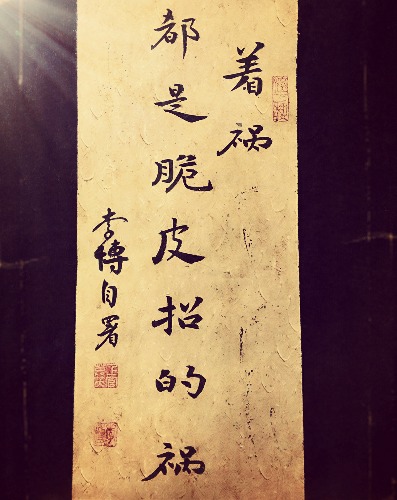 着祸
都是脆皮招的祸
李博自署